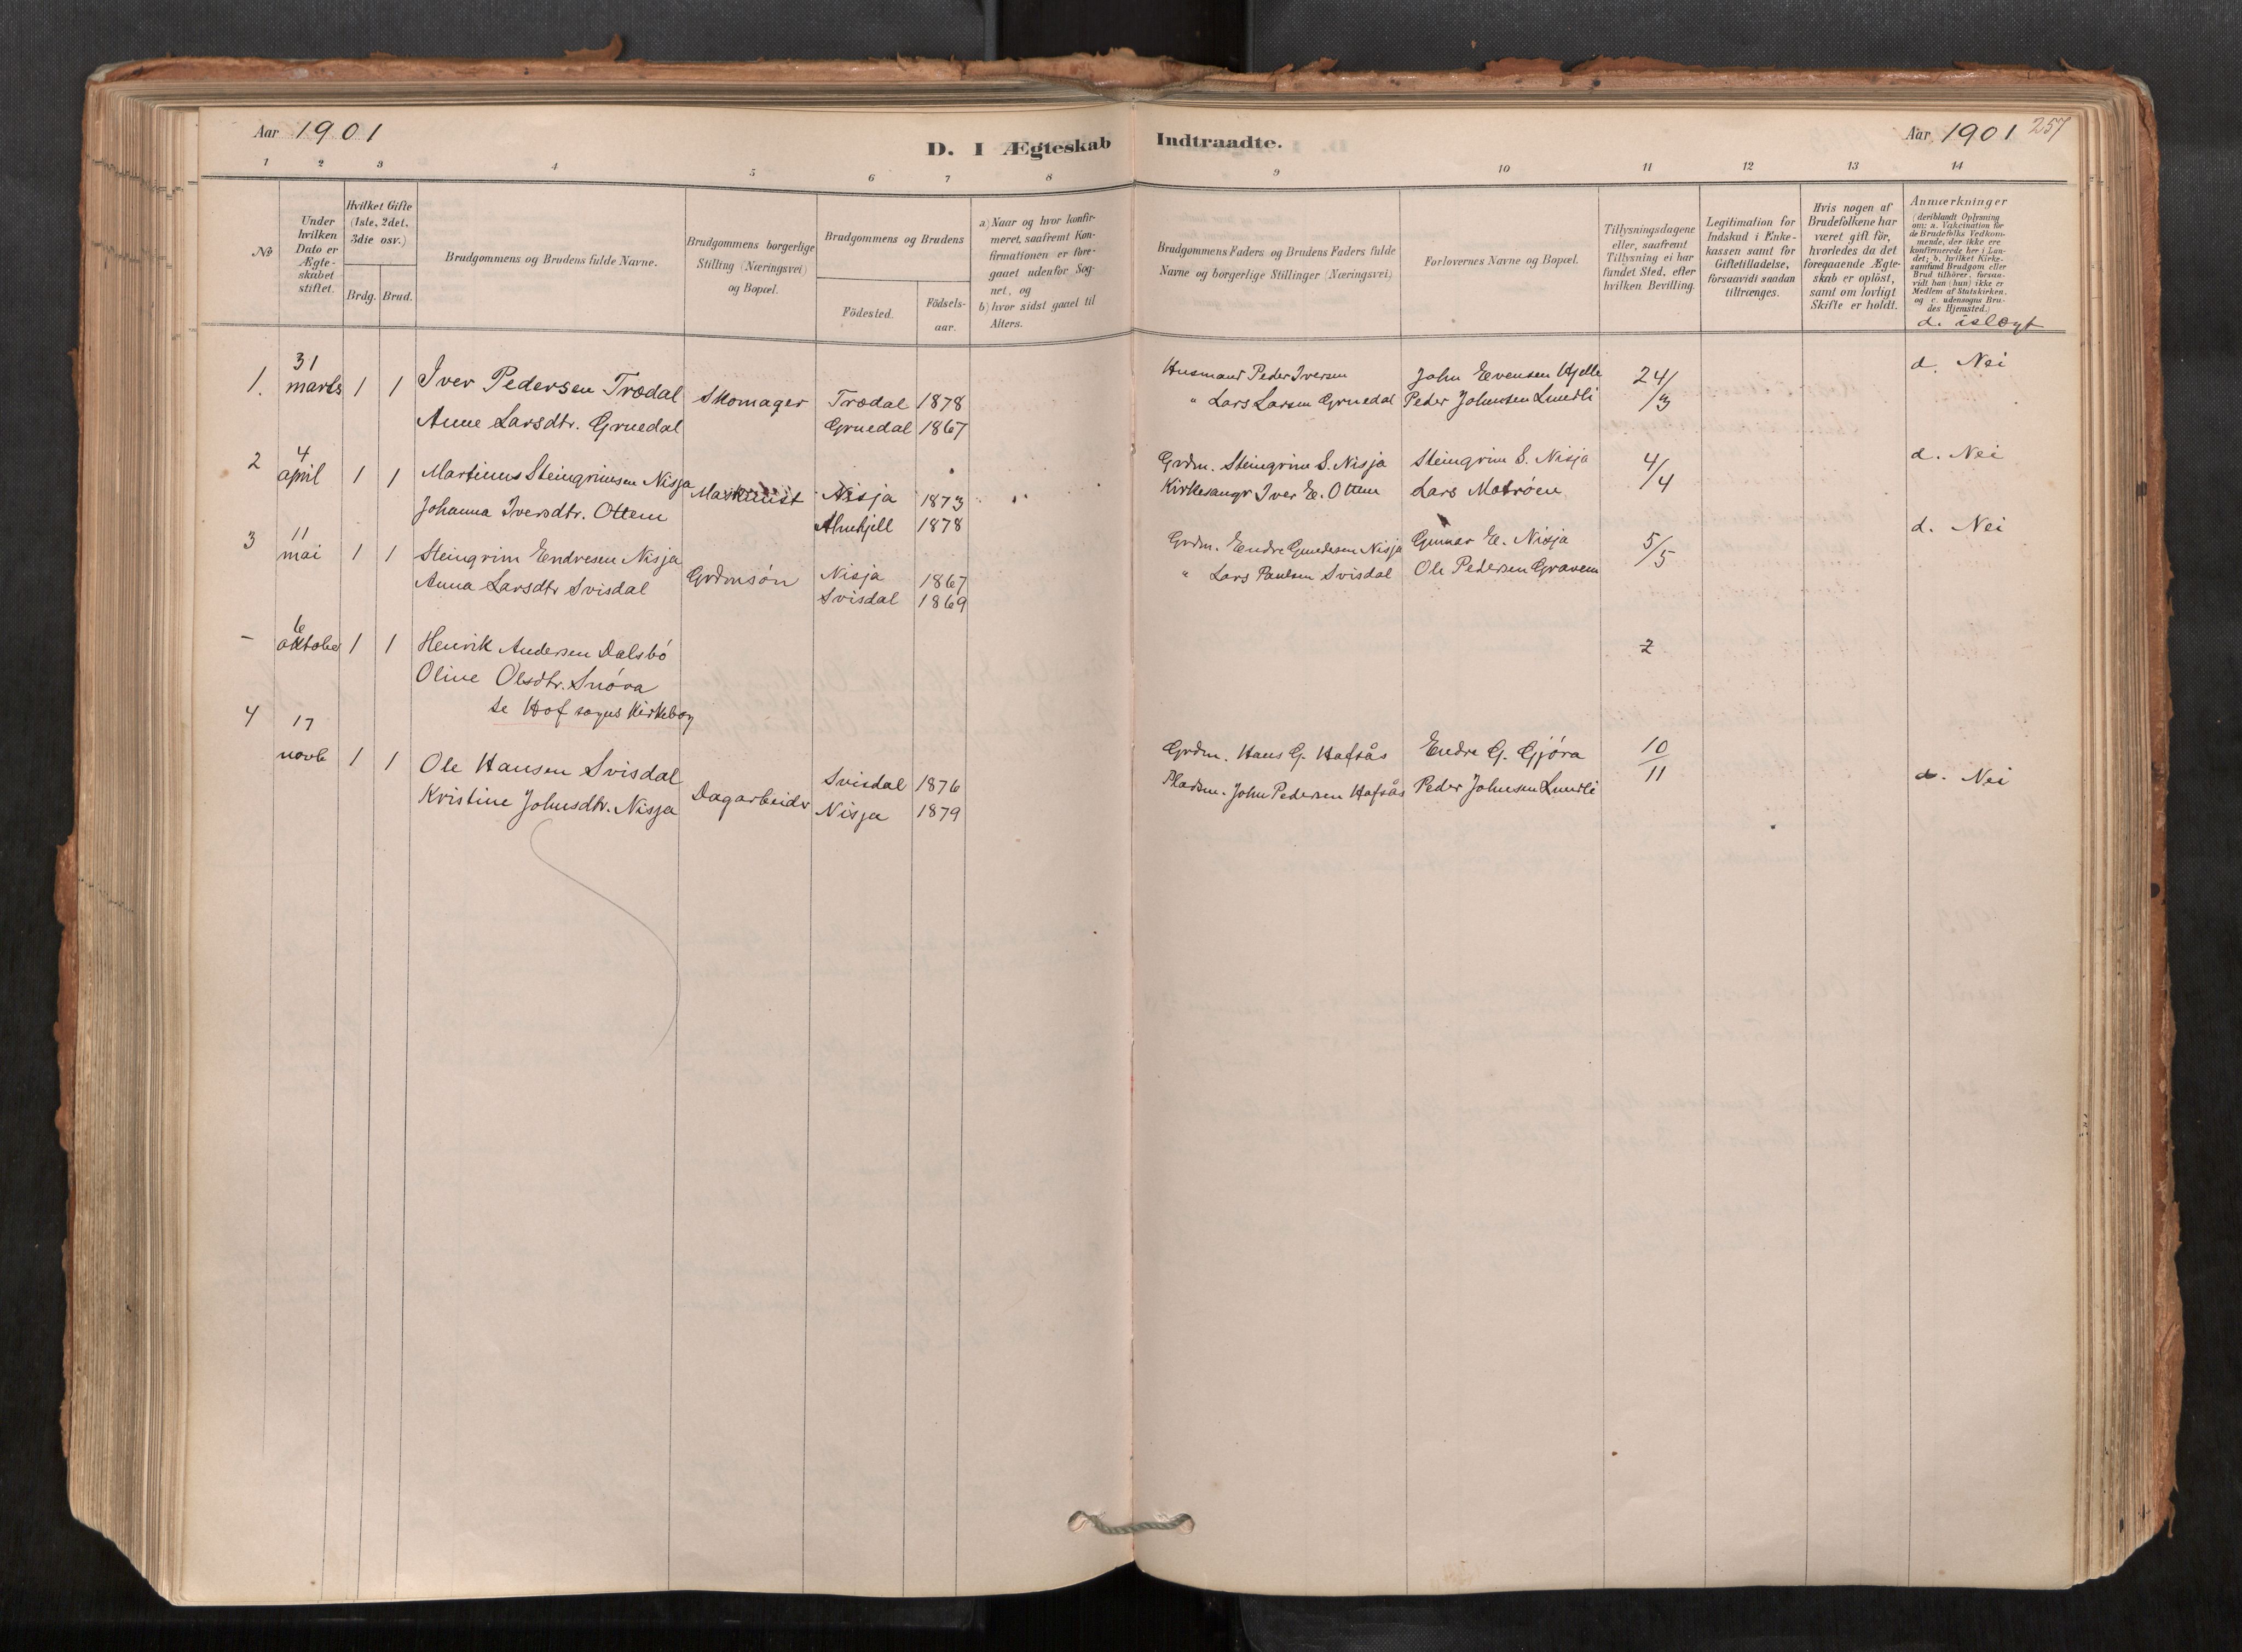 Aar 1901
D. I Ægteskab Indtraadte.
Aar 1901 257
1 2 3 4 5 6 7 8 9 10 11 12 13 14
No
Under hvilken Dato er Ægte-skabet stiftet.
Hvilket Gifte (1ste, 2det, 3die osv.)
Brdg. Brud.
Brudgommens og Brudens fulde Navne.
Brudgommens borgerlige Stilling (Næringsvei) og Bopæl.
Brudgommens og Brudens
Födested.
Födsels-aar.
a) Naar og hvor konfir-
meret, saafremt Kon-
firmationen er fore-
gaaet udenfor Sog-
net, og
b) hvor sidst gaaet til
Alters.
Brudgommens Faders og Brudens Faders fulde
Navne og borgerlige Stillinger (Næringsvei)
Forlovernes Navne og Bopæl.
Tillysningsdagene
eller, saafremt
Tillysning ei har
fundet Sted, efter
hvilken Bevilling.
Legitimation for
Indskud i Enke-
kassen samt for
Giftetilladelse,
forsaavidt saadan
tiltrænges.
Hvis nogen af
Brudefolkene har
været gift för,
hvorledes da det
foregaaende Ægte-
skab er oplöst,
samt om lovligt
Skifte er holdt.
Anmærkninger
(deriblandt Oplysning
om: a. Vakcination for
de Brudefolks Vedkom-
mende, der ikke ere
konfirmerede her i Lan-
det; b. hvilket Kirke-
samfund Brudgom eller
Brud tilhörer, forsaa-
vidt han (hun) ikke er
Medlem af Statskirken,
og c. udensogns Bru-
des Hjemsted.)
d. islægt
1. 31 marts 1 1 Iver Pedersen Trædal Skomager Trædal 1878 Husmand Peder Iversen John Evensen Hjelle 24/3 d. Nei
Anne Larsdtr. Gruedal Gruedal 1867 " Lars Larsen Gruedal Peder Johnsen Lundli
2 4 april 1 1 Martinus Steingrimsen Nisja Maskinist Nisja 1873 Grdm. Steingrim S. Nisja Steingrim S. Nisja 4/4 d. Nei
Johanna Iversdtr. Ottem Almhjell 1878 Kirkesangr Iver E. Ottem Lars Motrøen
3 11 mai 1 1 Steingrim Endresen Nisja Grdmsøn Nisja 1867 Grdm. Endre Gundersen Nisja Gunnar E. Nisja 5/5 d. Nei
Anna Larsdtr Svisdal Svisdal 1869 " Lars Paulsen Svisdal Ole Pedersen Gravem
- 6 oktober 1 1 Henrik Andersen Dalsbó
Oline Olsdtr. Snóva
se Hof sogns Kirkebog
4 17 novb 1 1 Ole Hansen Svisdal Dagarbeider Svisdal 1876 Grdm. Hans G. Hafsås Endre G. Gjóra 10/11 d. Nei
Kristine Johnsdtr. Nisja Nisja 1879 Pladsm. John Pedersen Hafsås Peder Johnsen Lundli